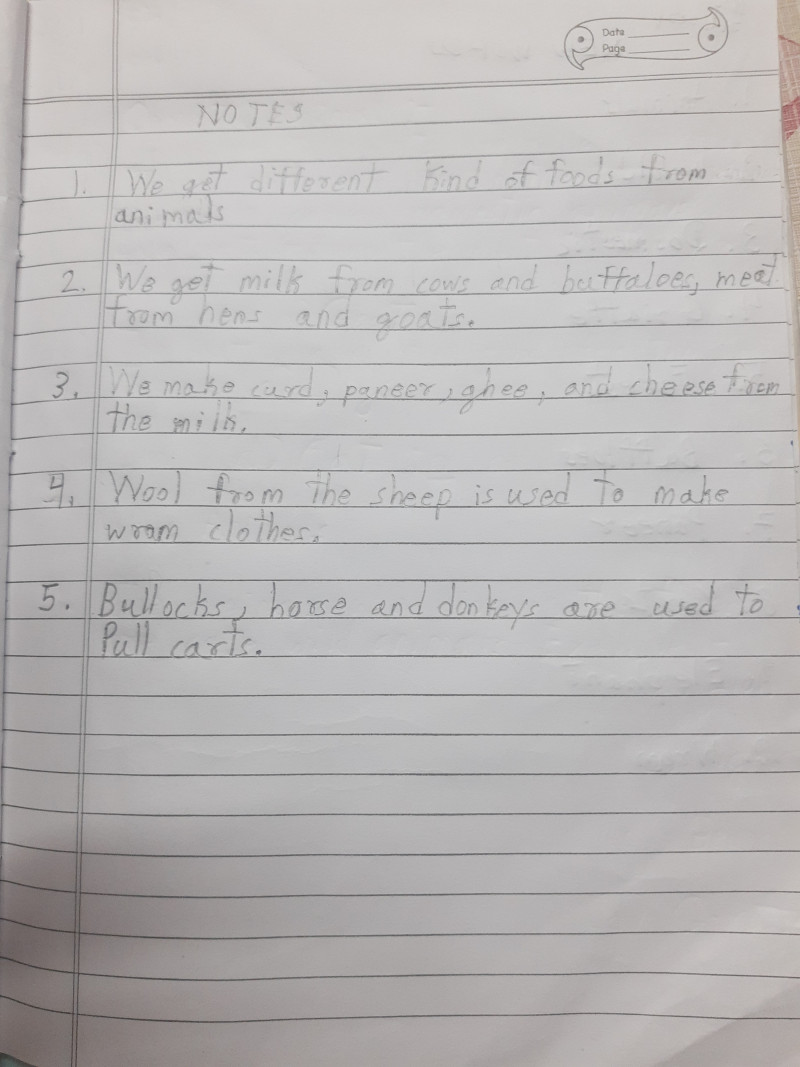 Date
Page
NOTES
1. We get different kind of foods from
animals
2. We get milk from cows and buffaloes, meat
from hens and goats.
3. We make curd, paneer, ghee, and cheese from
the milk.
4. Wool from the sheep is used to make
wrom clothes.
5. Bullocks, horse and donkeys are used to
Pull carts.